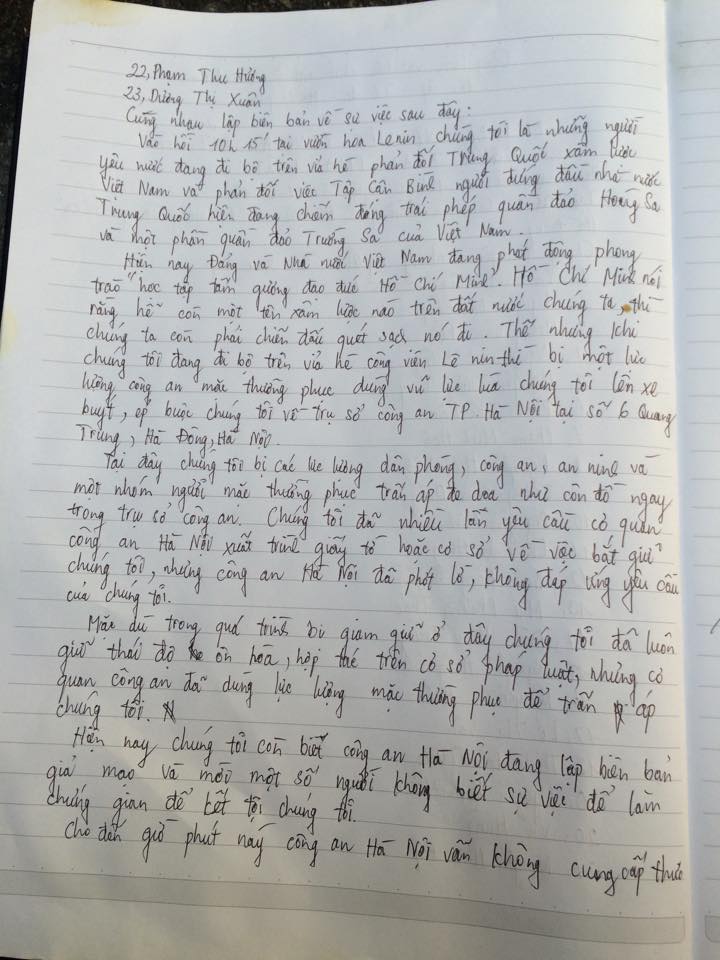 22, Phạm Thu Hương
23, Dương Thị Xuân
Cùng nhau lập biên bản về sự việc sau đây:
Vào hồi 10h 15' tại vườn hoa Lenin chúng tôi là những người
yêu nước đang đi bộ trên vỉa hè phản đối Trung Quốc xâm lược
Việt Nam và phản đối việc Tập Cận Bình người đứng đầu nhà nước
Trung Quốc hiện đang chiếm đóng trái phép quần đảo Hoàng Sa
và một phần quần đảo Trường Sa của Việt Nam.
Hiện nay Đảng và Nhà nước Việt Nam đang phát động phong
trào "học tập tấm gương đạo đức Hồ Chí Minh". Hồ Chí Minh nói
rằng hễ còn một tên xâm lược nào trên đất nước chúng ta, thì
chúng ta còn phải chiến đấu quét sạch nó đi. Thế nhưng khi
chúng tôi đang đi bộ trên vỉa hè công viên Lê nin thì bị một lực
lượng công an mặc thường phục dùng vũ lực lùa chúng tôi lên xe
buýt, ép buộc chúng tôi về trụ sở công an TP. Hà Nội tại số 6 Quang
Trung, Hà Đông, Hà Nội.
Tại đây chúng tôi bị các lực lượng dân phòng, công an, an ninh và
một nhóm người mặc thường phục trấn áp đe dọa như côn đồ ngay
trong trụ sở công an. Chúng tôi đã nhiều lần yêu cầu cơ quan
công an Hà Nội xuất trình giấy tờ hoặc cơ sở về việc bắt giữ
chúng tôi, nhưng công an Hà Nội đã phớt lờ, không đáp ứng yêu cầu
của chúng tôi.
Mặc dù trong quá trình bị giam giữ ở đây chúng tôi đã luôn
giữ thái độ ôn hòa, hợp tác trên cơ sở pháp luật, nhưng cơ
quan công an đã dùng lực lượng mặc thường phục để trấn áp
chúng tôi.
Hiện nay chúng tôi còn biết công an Hà Nội đang lập biên bản
giả mạo và mời một số người không biết sự việc để làm
chứng gian để kết tội chúng tôi.
Cho đến giờ phút này công an Hà Nội vẫn không cung cấp thức